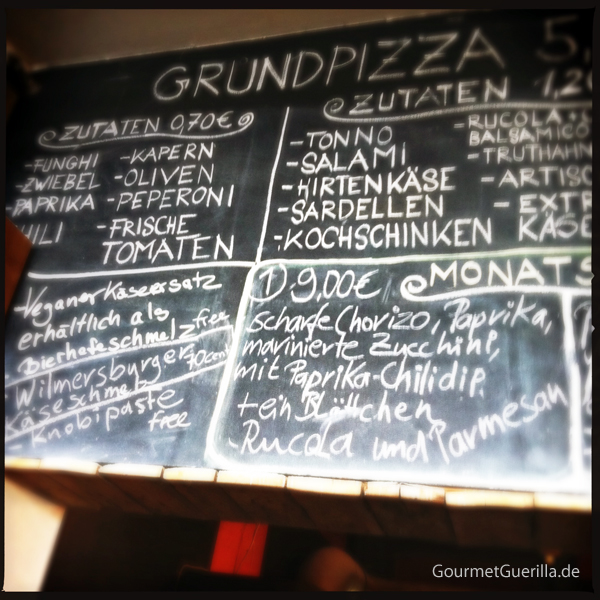 GRUNDPIZZA 5,
ZUTATEN 0,70€
-FUNGHI -KAPERN
-ZWIEBEL -OLIVEN
-PAPRIKA -PEPERONI
HILI -FRISCHE
TOMATEN
ZUTATEN 1,20
-TONNO
-SALAMI
-HIRTENKÄSE
-SARDELLEN
-KOCHSCHINKEN
-RUCOLA+
BALSAMICO
-TRUTHAHN
-ARTISC
-EXTR
KÄSE
-Veganer Käseersatz
erhältlich als
-Bierhefeschmelz free
-Wilmersburger
Käseschmelz
Knobipaste
free
MONATS
1) 9,00€
scharfe Chorizo, Paprika,
marinierte Zucchini,
mit Paprika-Chilidip
+ ein Blättchen
-Rucola und Parmesan
GourmetGuerilla.de